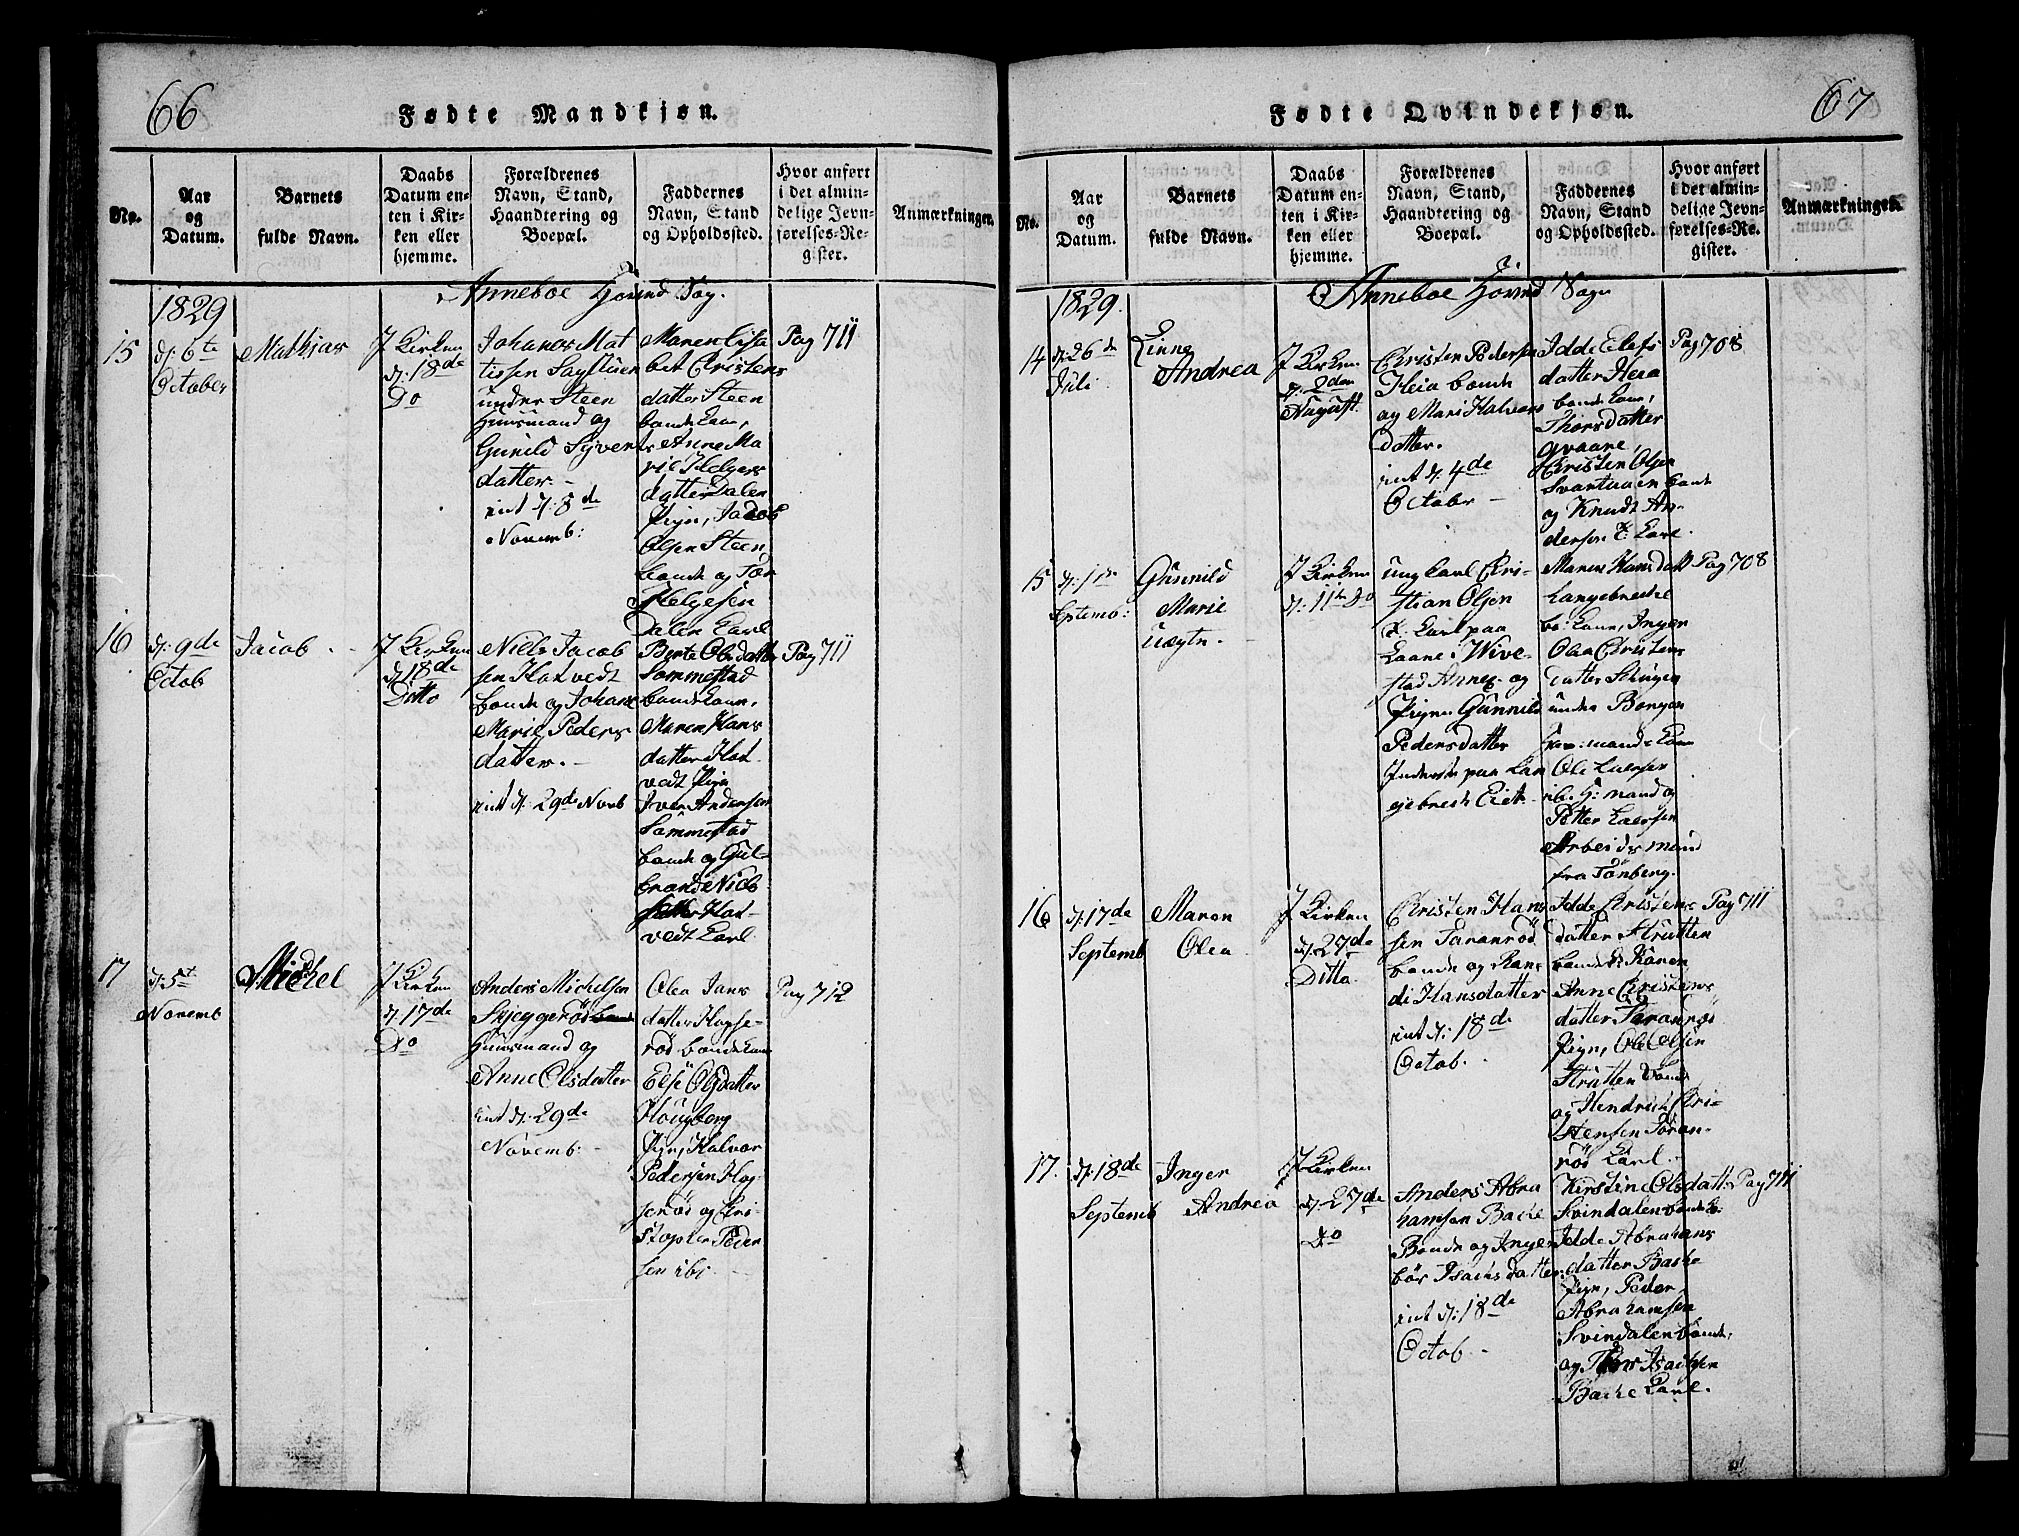 66
Fødte Mandkjøn.
No.
Aar
og
Datum.
Barnets
fulde Navn.
Daabs
Datum en-
ten i Kir-
ken eller
hjemme.
Forældrenes
Navn, Stand,
Haandtering og
Boepæl.
Faddernes
Navn, Stand
og Opholdssted.
Hvor anført
i det almin-
delige Jevn-
førelses-Re-
gister.
Anmærkninger.
1829
Anneboe Hovind Sogn.
15
d: 6te
October
Mathias
J Kirken
d. 18de
Do
Johanes Mat
tissen
under Steen
Huusmand og
Gunild Syvert
datter.
int d. 8de
Novemb:
Maren Lisa
bet Christens
datter Steen
bonde Kone,
Anne Ma
rie Helges
datter Dalen
Pige, Jacob
Olsen Steen
bonde og Tor
Helgesen
Dalen Karl
Pag 711
16
d: 9de
Octob
Jacob
J Kirken
d 18de
Ditto
Niels Jacob
sen Hotvedt
bonde og Johane
Marie Peders
datter.
int d. 29de Novb
Berte Olsdatter
Sommestad
bonde Kone,
Maren Hans
datter Hot
vedt Pige
Iver Andersen
Sommestad
bonde og Gul-
brand Niels
Hot-
vedt Karl
Pag 711
17
d: 5t
Novemb
Michel
J Kirken
d. 17de
Do
Anders Michelsen
Skjeggerød
Huusmand og
Anne Olsdatter
int d. 29de
Novemb.
Olea Jans
datter Hogse-
rød bonde Kone
Else Olsdatter
Hougberg
Pige, Halvor
Pedersen Hog
serød og Kri-
stopher Peder
sen ibi
Pag 712
67
Fødte Qvindekjøn.
No.
Aar
og
Datum.
Barnets
fulde Navn.
Daabs
Datum en-
ten i Kir-
ken eller
hjemme.
Forældrenes
Navn, Stand,
Haandtering og
Boepæl.
Faddernes
Navn, Stand
og Opholdssted.
Hvor anført
i det almin-
delige Jevn-
førelses-Re-
gister.
Anmærkninger.
1829.
Anneboe Hovind Sogn
14
d: 26de
Juli
Linne
Andrea
J Kirken
d. 2den
August.
Christen Pedersen
Heia bonde
og Mari Halvors
datter.
int d. 4de
October
Idde Elefs
datter Heia
bonde Kone,
Thorsdatter
Christen Olsen
bonde
og Knudt An-
dersen Karl.
Pag 708
15
d. 1te
Septemb:
Gunnild
Marie
Uægte.
J Kirken
ung Karl Chri-
stian Olsen
Karl paa
Wive-
stad Annex og
Pigen Gunnild
Pedersdatter
Inderst paa Lan
gebrek Eiet.
Maren Hansdatt
Langebrecke
Inger
Olea Christens
datter
under Borgen
Ole Larsen
ib. H: mand og
Petter Larsen
Arbeidsmand
fra Tønberg.
Pag 708
16
d. 17de
Septemb
Maren
Olea
J Kirken
d. 27de
Ditto.
Christen Hans
sen Taranrød
bonde og Ran
di Hansdatter
int d: 18de
Octob.
Idde Christens
datter Strutten
Anne Christens
datter Taranrød
Pige, Ole Olsen
Strutten bond
og Hendrich Chri-
stensen Taran-
rød Karl.
Pag 711
17.
d. 18de
Septemb
Inger
Andrea
J Kirken
d. 27de
Do
Anders Abra
hamsen Bache
Bonde og Inge
bør Isachsdatter.
int d: 18de
Octob.
Kirstine Olsdatt
Svindalen bonde K:
Idde Abrahams
datter Bache
Pige, Peder
Abrahamsen
Svindalen bonde,
og Thor Isachsen
Bache Karl.
Pag 711